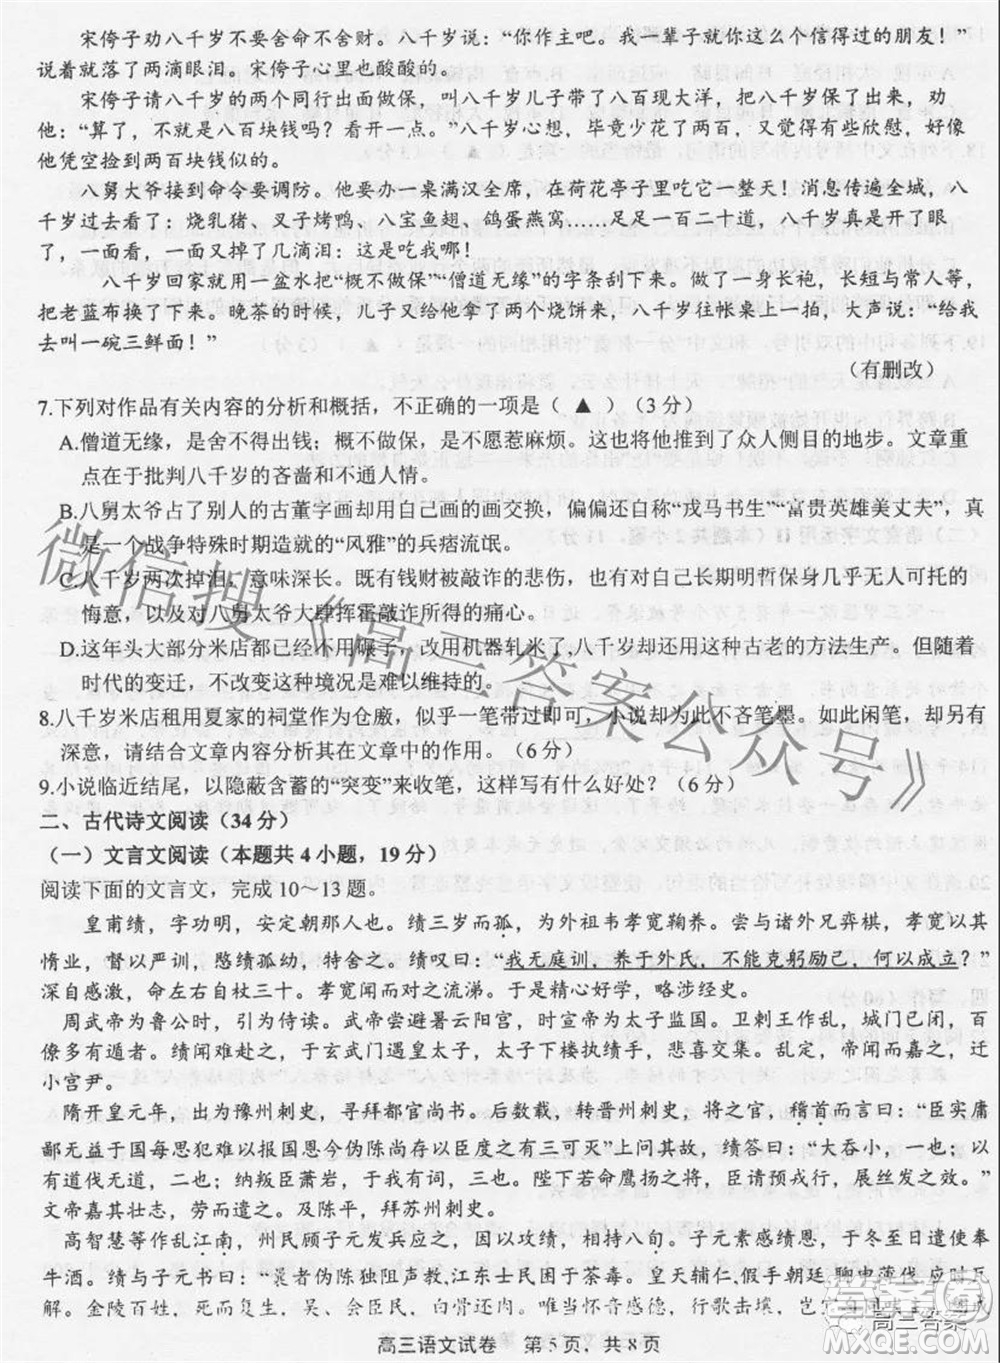 宋侉子劝八千岁不要舍命不舍财。八千岁说：“你作主吧。我一辈子就你这么个信得过的朋友！”
说着就落了两滴眼泪。宋侉子心里也酸酸的。
宋侉子请八千岁的两个同行出面做保，叫八千岁儿子带了八百现大洋，八千岁保了出来，劝
他：“算了，不就是八百块钱吗？看开一点。”八千岁心想，毕竟少花了两百，又觉得有些欣慰，好像
他凭空捡到两百块钱似的。
八舅太爷接到命令要调防。他要办一桌满汉全席，在荷花亭子里吃它一整天！消息传遍全城，八
千岁过去看了：烧乳猪、叉子烤鸭、八宝鱼翅、鸽蛋燕窝……足足一百二十道，八千岁真是开了眼
了，一面看，一面又掉了几滴泪：这是吃我哪！
八千岁回家就用一盆水把“概不做保”“僧道无缘”的字条刮下来。做了一身长袍，长短与常人等，
把老蓝布换了下来。晚茶的时候，儿子又给他拿了两个烧饼来，八千岁往帐桌上一拍，大声说：“给我
去叫一碗三鲜面！”
（有删改）
7.下列对作品有关内容的分析和概括，不正确的一项是（ ▲ ）（3分）
A.僧道无缘，是舍不得出钱；概不做保，是不愿惹麻烦。这些，都推到了众人侧目的地步。文章重
点在于批判八千岁的吝啬和不通人情。
B.八舅太爷占了别人的古董字画却用自己画的一文不值的画交换，偏偏还自称“戎马书生”“富贵英雄美丈夫”，真
是一个战争特殊时期造就的“风雅”的兵痞流氓。
C.八千岁两次掉泪，意味深长。既有钱财被敲诈的悲伤，也有对自己长期明哲保身几乎无人可托的
悔意，以及对八舅太爷大肆挥霍敲诈所得的痛心。
D.这年头大部分米店都已经不用碾子，改用机器轧米了，八千岁却还用这种古老的方法生产。但随着
时代的变迁，不改变这种境况是难以维持的。
8.八千岁米店租用夏家的祠堂作为仓廒，似乎一笔带过即可，小说却为此不吝笔墨。如此闲笔，却有
深意，请结合文章内容分析其在文章中的作用。（6分）
9.小说临近结尾，以隐蔽含蓄的“突变”来收笔，这样写有什么好处？（6分）
二、古代诗文阅读（34分）
（一）文言文阅读（本题共4小题，19分）
阅读下面的文言文，完成10～13题。
皇甫绩，字功明，安定朝那人也。绩三岁而孤，为外祖韦孝宽鞠养。尝与诸外兄弈棋，孝宽以其
惰业，督以严训，愍绩孤幼，特舍之。绩叹曰：“我无庭训，养于外氏，不能克躬励己，何以成立？”
深自感激，命左右自杖三十。孝宽闻而对之流涕。于是精心好学，略涉经史。
周武帝为鲁公时，引为侍读。武帝尝避暑云阳宫，时宣帝为太子监国。卫剌王作乱，城门已闭，百
多有遁者。绩闻难赴之，于玄武门遇皇太子，太子下楼执绩手，悲喜交集。乱定，帝闻而嘉之，迁
小宫尹。
隋开皇元年，出为豫州刺史，寻拜都官尚书。后数载，转晋州刺史，将之官，稽首而言曰：“臣实庸
鄙无益于国每思犯难以报国恩今伪陈尚存以臣度之有三可灭”上问其故，绩答曰：“大吞小，一也；以
有道伐无道，二也；纳叛臣萧岩，于我有词，三也。陛下若命鹰扬之将，臣请预戎行，展丝发之效。”
文帝嘉其壮志，劳而遣之。及陈平，拜苏州刺史。
高智慧等作乱江南，州民顾子元发兵应之，因以攻绩，相持八旬。子元素感绩恩，于冬至日遣使奉
牛酒。绩与子元书曰：“
者伪陈独阻声教，江东士民困于荼毒。皇天辅仁，假手朝廷，聊申薄伐，
解。金陵百姓，死而复生，吴、会臣民，白骨还肉。唯当怀音感德，行歌击壤，岂
高三语文试卷 第5页，共8页
微信搜《高三答案公众号》
高三答案